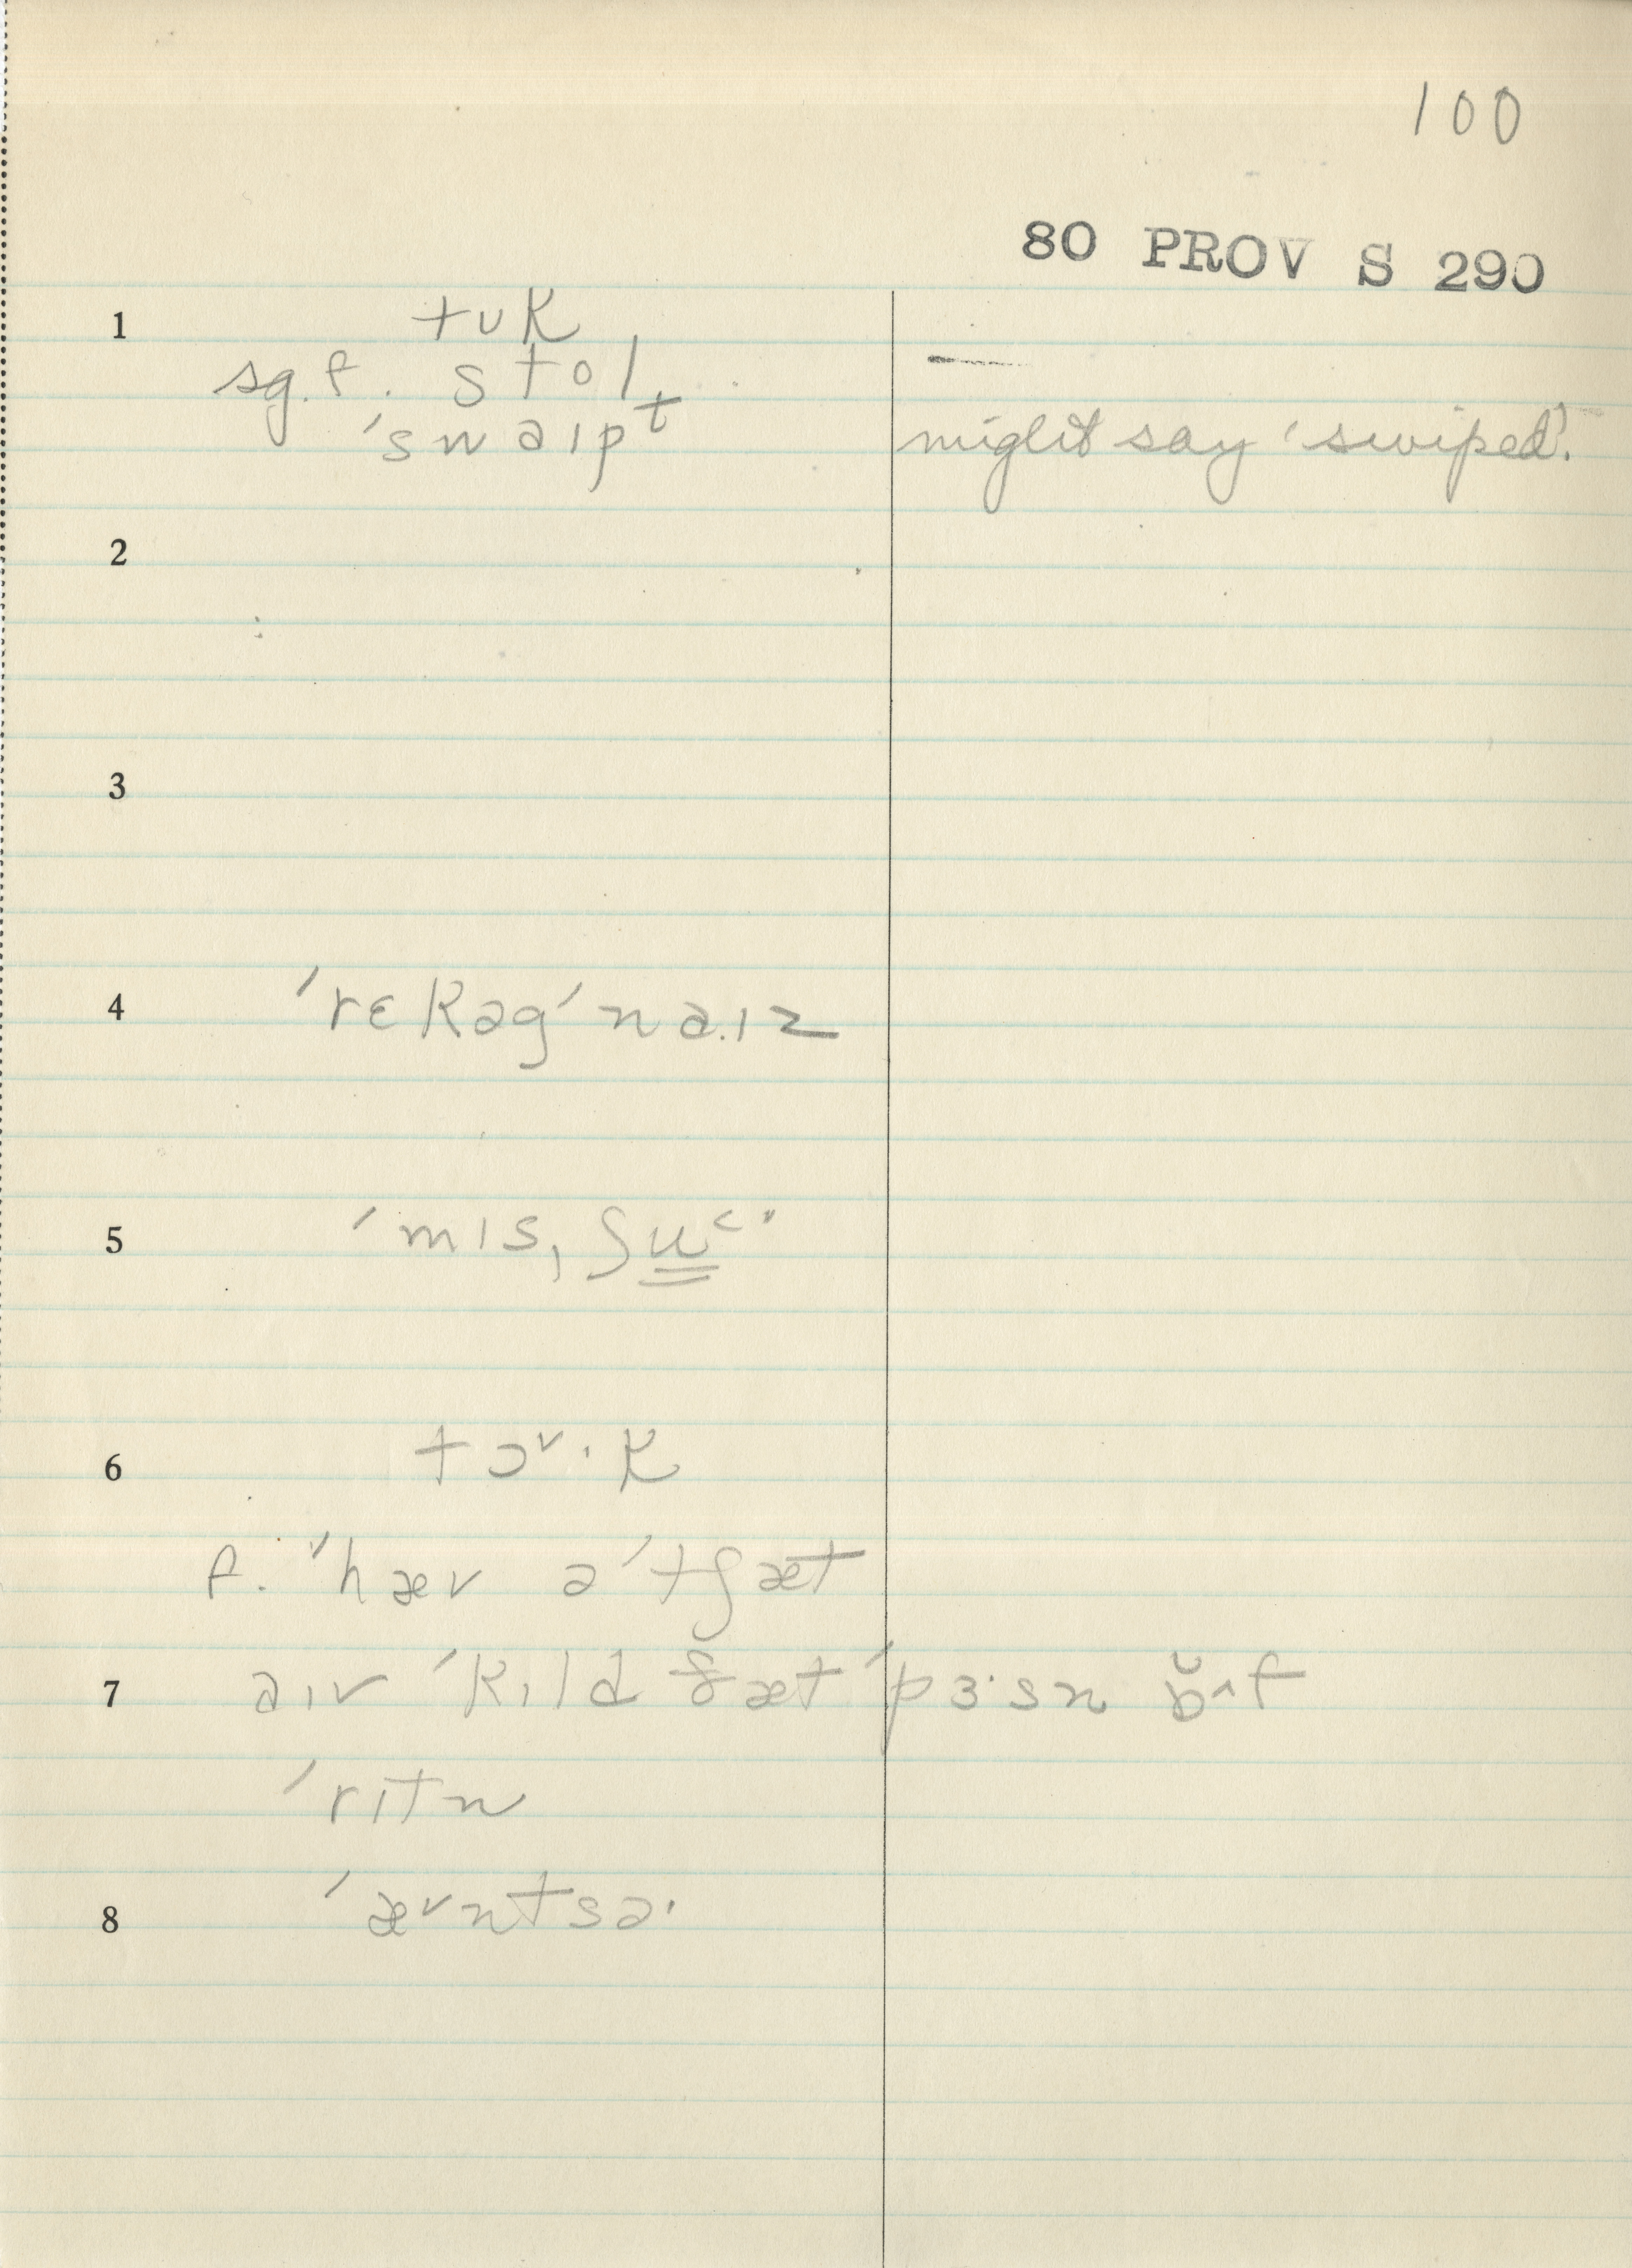 100
80 PROV S 290
1 tʊk
sg. f. stol —
ˈswaɪpt might say 'swiped'.
2
3
4 ˈrɛkəgˈna·ɪz
5 ˈmɪsˌʃu̳˂·
6 tɔ˅·k
f. ˈˈhæv ə ˈtʃæt
7 aɪv ˈkɪld ðæt ˈpɜ·sn̩ b̆ʌt
ˈrɪtn
8 ˈæ˅ntsə·